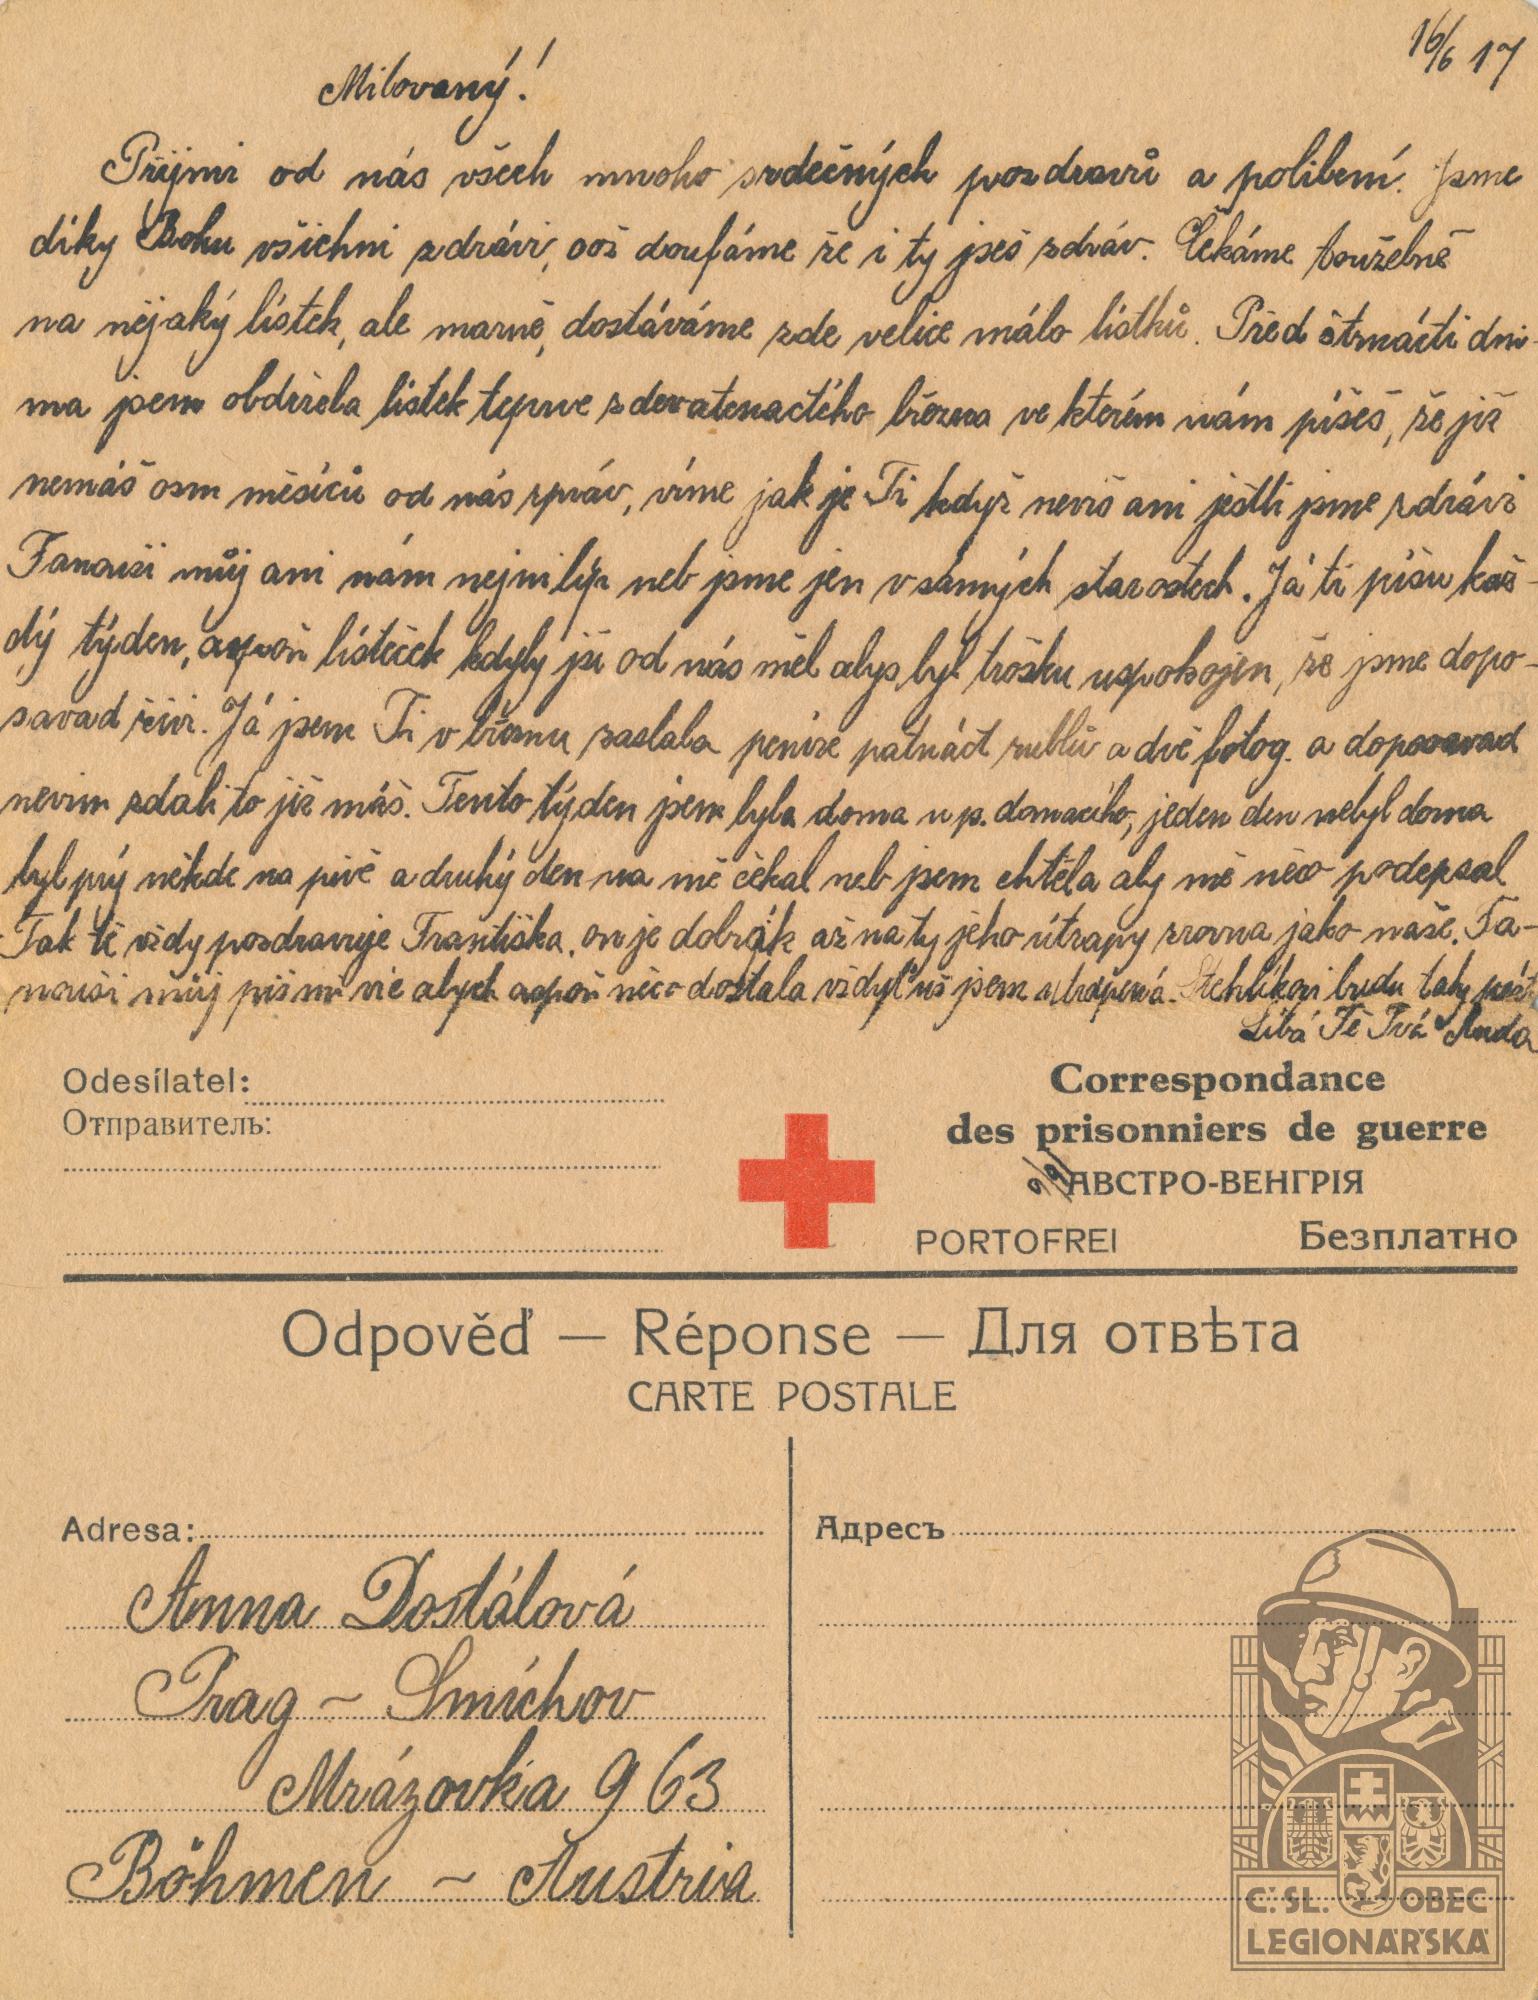 16/6 17
Milovaný!
Přijmi od nás všech mnoho srdečných pozdravů a políbení. Jsme
díky Bohu všichni zdrávi, což doufáme že i ty jseš zdráv. Čekáme toužebně
na nějaký lístek, ale marně, dostáváme zde velice málo lístků. Před štrnácti dni-
ma jsem obdržela lístek teprve z devatenáctého března ve kterém nám píšeš, že již
nemáš osm měsíců od nás zpráv, víme jak je Ti když nevíš ani jestli jsme zdrávi
Fanouši můj ani nám nejni líp neb jsme jen v samých starostech. Já ti píšu kaž-
dý týden, aspoň lísteček kdyby jsi od nás měl abys byl trošku uspokojen, že jsme dopo-
savad živi. Já jsem Ti v březnu zaslala peníze patnáct rublů a dvě fotog. a doposavad
nevím zdali to již máš. Tento týden jsem byla doma u p. domácího, jeden den nebyl doma
byl prý někde na pivě a druhý den na mě čekal neb jsem chtěla aby mě něco podepsal
Tak tě vždy pozdravuje Františka. on je dobrák až na ty jeho útrapy zrovna jako naše. Fa-
nouši můj piš mi víc abych aspoň něco dostala vždyť už jsem utrápená. Stehlíkovi budu taky psát
Líbá Tě Tvá Anda
Odesílatel:
Отправитель:
Correspondance
des prisonniers de guerre
АВСТРО-ВЕНГРІЯ
PORTOFREI Безплатно
Odpověď — Réponse — Для отвѣта
CARTE POSTALE
Adresa:
Anna Dostálová
Prag ~ Smíchov
Mrázovka 963
Böhmen ~ Austria
Адресъ
Č. SL. OBEC
LEGIONÁŘSKÁ